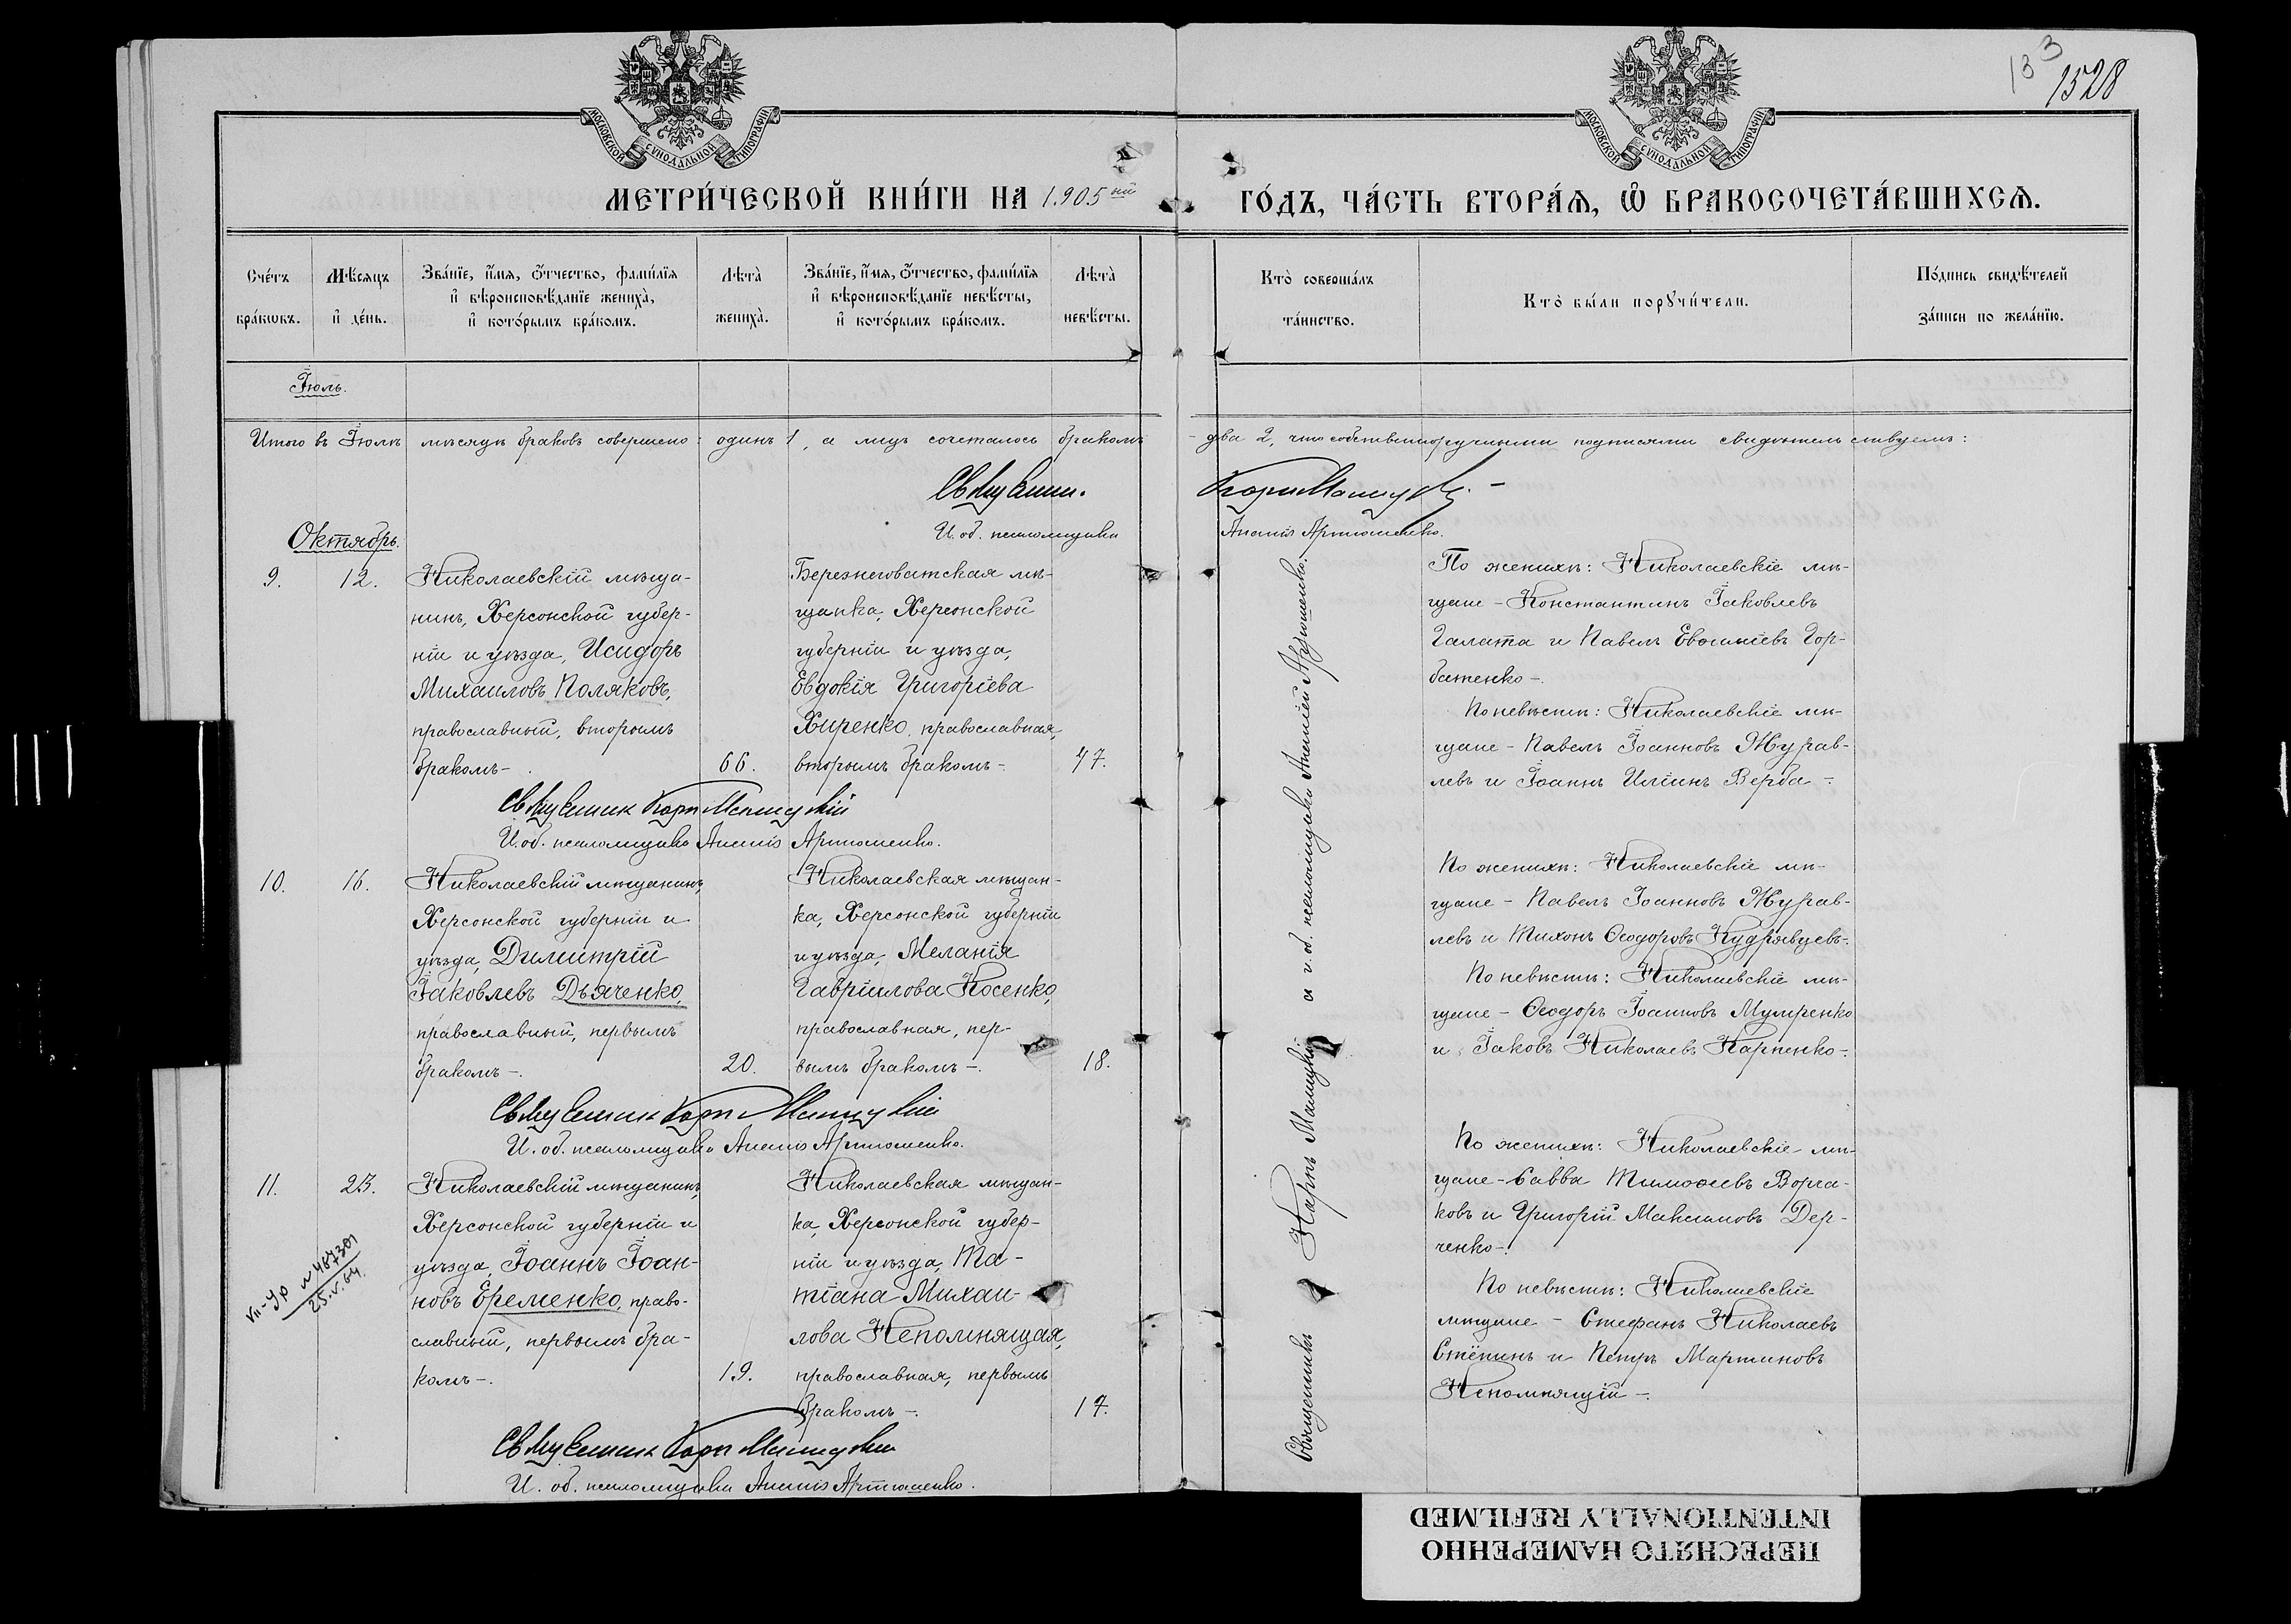 133
1528
МОСКОВСКОЙ СѴНОДАЛЬНОЙ ТИПОГРАФІИ
МОСКОВСКОЙ СѴНОДАЛЬНОЙ ТИПОГРАФІИ
МЕТРИ́ЧЕСКОЙ КНИ́ГИ НА 1905ый ГО́ДЪ, ЧА́СТЬ ВТОРА́Ѧ, Ѽ БРАКОСОЧЕТА́ВШИХСѦ.
Сче́тъ
бра́кѡвъ.
Мѣ́сѧцъ
и҆ де́нь.
Зва́нїе, и҆́мѧ, ѻ҆́тчество, фами́лїѧ
и҆ вѣроисповѣ́данїе женихà,
и҆ кото́рымъ бра́комъ.
Лѣтà
женихà.
Зва́нїе, и҆́мѧ, ѻ҆́тчество, фами́лїѧ
и҆ вѣроисповѣ́данїе невѣ́сты,
и҆ кото́рымъ бра́комъ.
Лѣтà
невѣ́сты.
Кто̀ соверша́лъ
та́инство.
Кто̀ бы́ли порꙋчи́тели.
По́дпись свидѣ́телей
за́писи по жела́нїю.
Іюль.
Итого въ Іюлѣ мѣсяцѣ браковъ совершено: одинъ 1, а лицъ сочеталось бракомъ - два 2, что собственноручными подписями свидѣтельствуемъ:
Священн. Карпъ Мапицкій.
И. об. псаломщика Ананія Артюшенко.
Октябрь.
9.
12.
Николаевскій мѣща-
нинъ, Херсонской губер-
ніи и уѣзда, Исидоръ
Михаиловъ Поляковъ,
православный, вторымъ
бракомъ-.
66.
Березнеговатская мѣ-
щанка, Херсонской
губерніи и уѣзда,
Евдокія Григоріева
Хиренко, православная,
вторымъ бракомъ-.
47.
По женихѣ: Николаевскіе мѣ-
щане - Константинъ Іаковлевъ
Галата и Павелъ Евѳиміевъ Гор-
батенко-.
По невѣстѣ: Николаевскіе мѣ-
щане - Павелъ Іоанновъ Журав-
левъ и Іоаннъ Иліинъ Верба-.
Священникъ Карпъ Мапицкій
И. об. псаломщика Ананія Артюшенко.
10.
16.
Николаевскій мѣщанинъ,
Херсонской губерніи и
уѣзда, Димитрій
Іаковлевъ Дьяченко,
православный, первымъ
бракомъ-.
20.
Николаевская мѣщан-
ка, Херсонской губерніи
и уѣзда, Меланія
Гавріилова Косенко,
православная, пер-
вымъ бракомъ-.
18.
По женихѣ: Николаевскіе мѣ-
щане - Павелъ Іоанновъ Журав-
левъ и Тихонъ Ѳеодоровъ Кудрявцевъ-.
По невѣстѣ: Николаевскіе мѣ-
щане - Ѳеодоръ Іоанновъ
и Іаковъ Николаевъ Карпенко-.
Священникъ Карпъ Мапицкій
И. об. псаломщика Ананія Артюшенко.
11.
23.
VII-ур № 487301
25.V.64.
Николаевскій мѣщанинъ,
Херсонской губерніи и
уѣзда, Іоаннъ Іоан-
новъ Еременко, право-
славный, первымъ бра-
комъ-.
19.
Николаевская мѣщан-
ка, Херсонской губер-
ніи и уѣзда, Та-
тіана Михаи-
лова Непомнящая,
православная, первымъ
бракомъ-.
17.
По женихѣ: Николаевскіе мѣ-
щане - Савва Тимоѳеевъ Ворча-
ковъ и Григорій Максимовъ Дер-
ченко-.
По невѣстѣ: Николаевскіе
мѣщане - Стефанъ Николаевъ
Стёпинъ и Петръ Мартиновъ
Непомнящій-.
Священникъ Карпъ Мапицкій
И. об. псаломщика Ананія Артюшенко.
Священникъ Карпъ Мапицкій и и. об. псаломщика Ананій Артюшенко.
INTENTIONALLY REFILMED
ПЕРЕСНЯТО НАМЕРЕННО